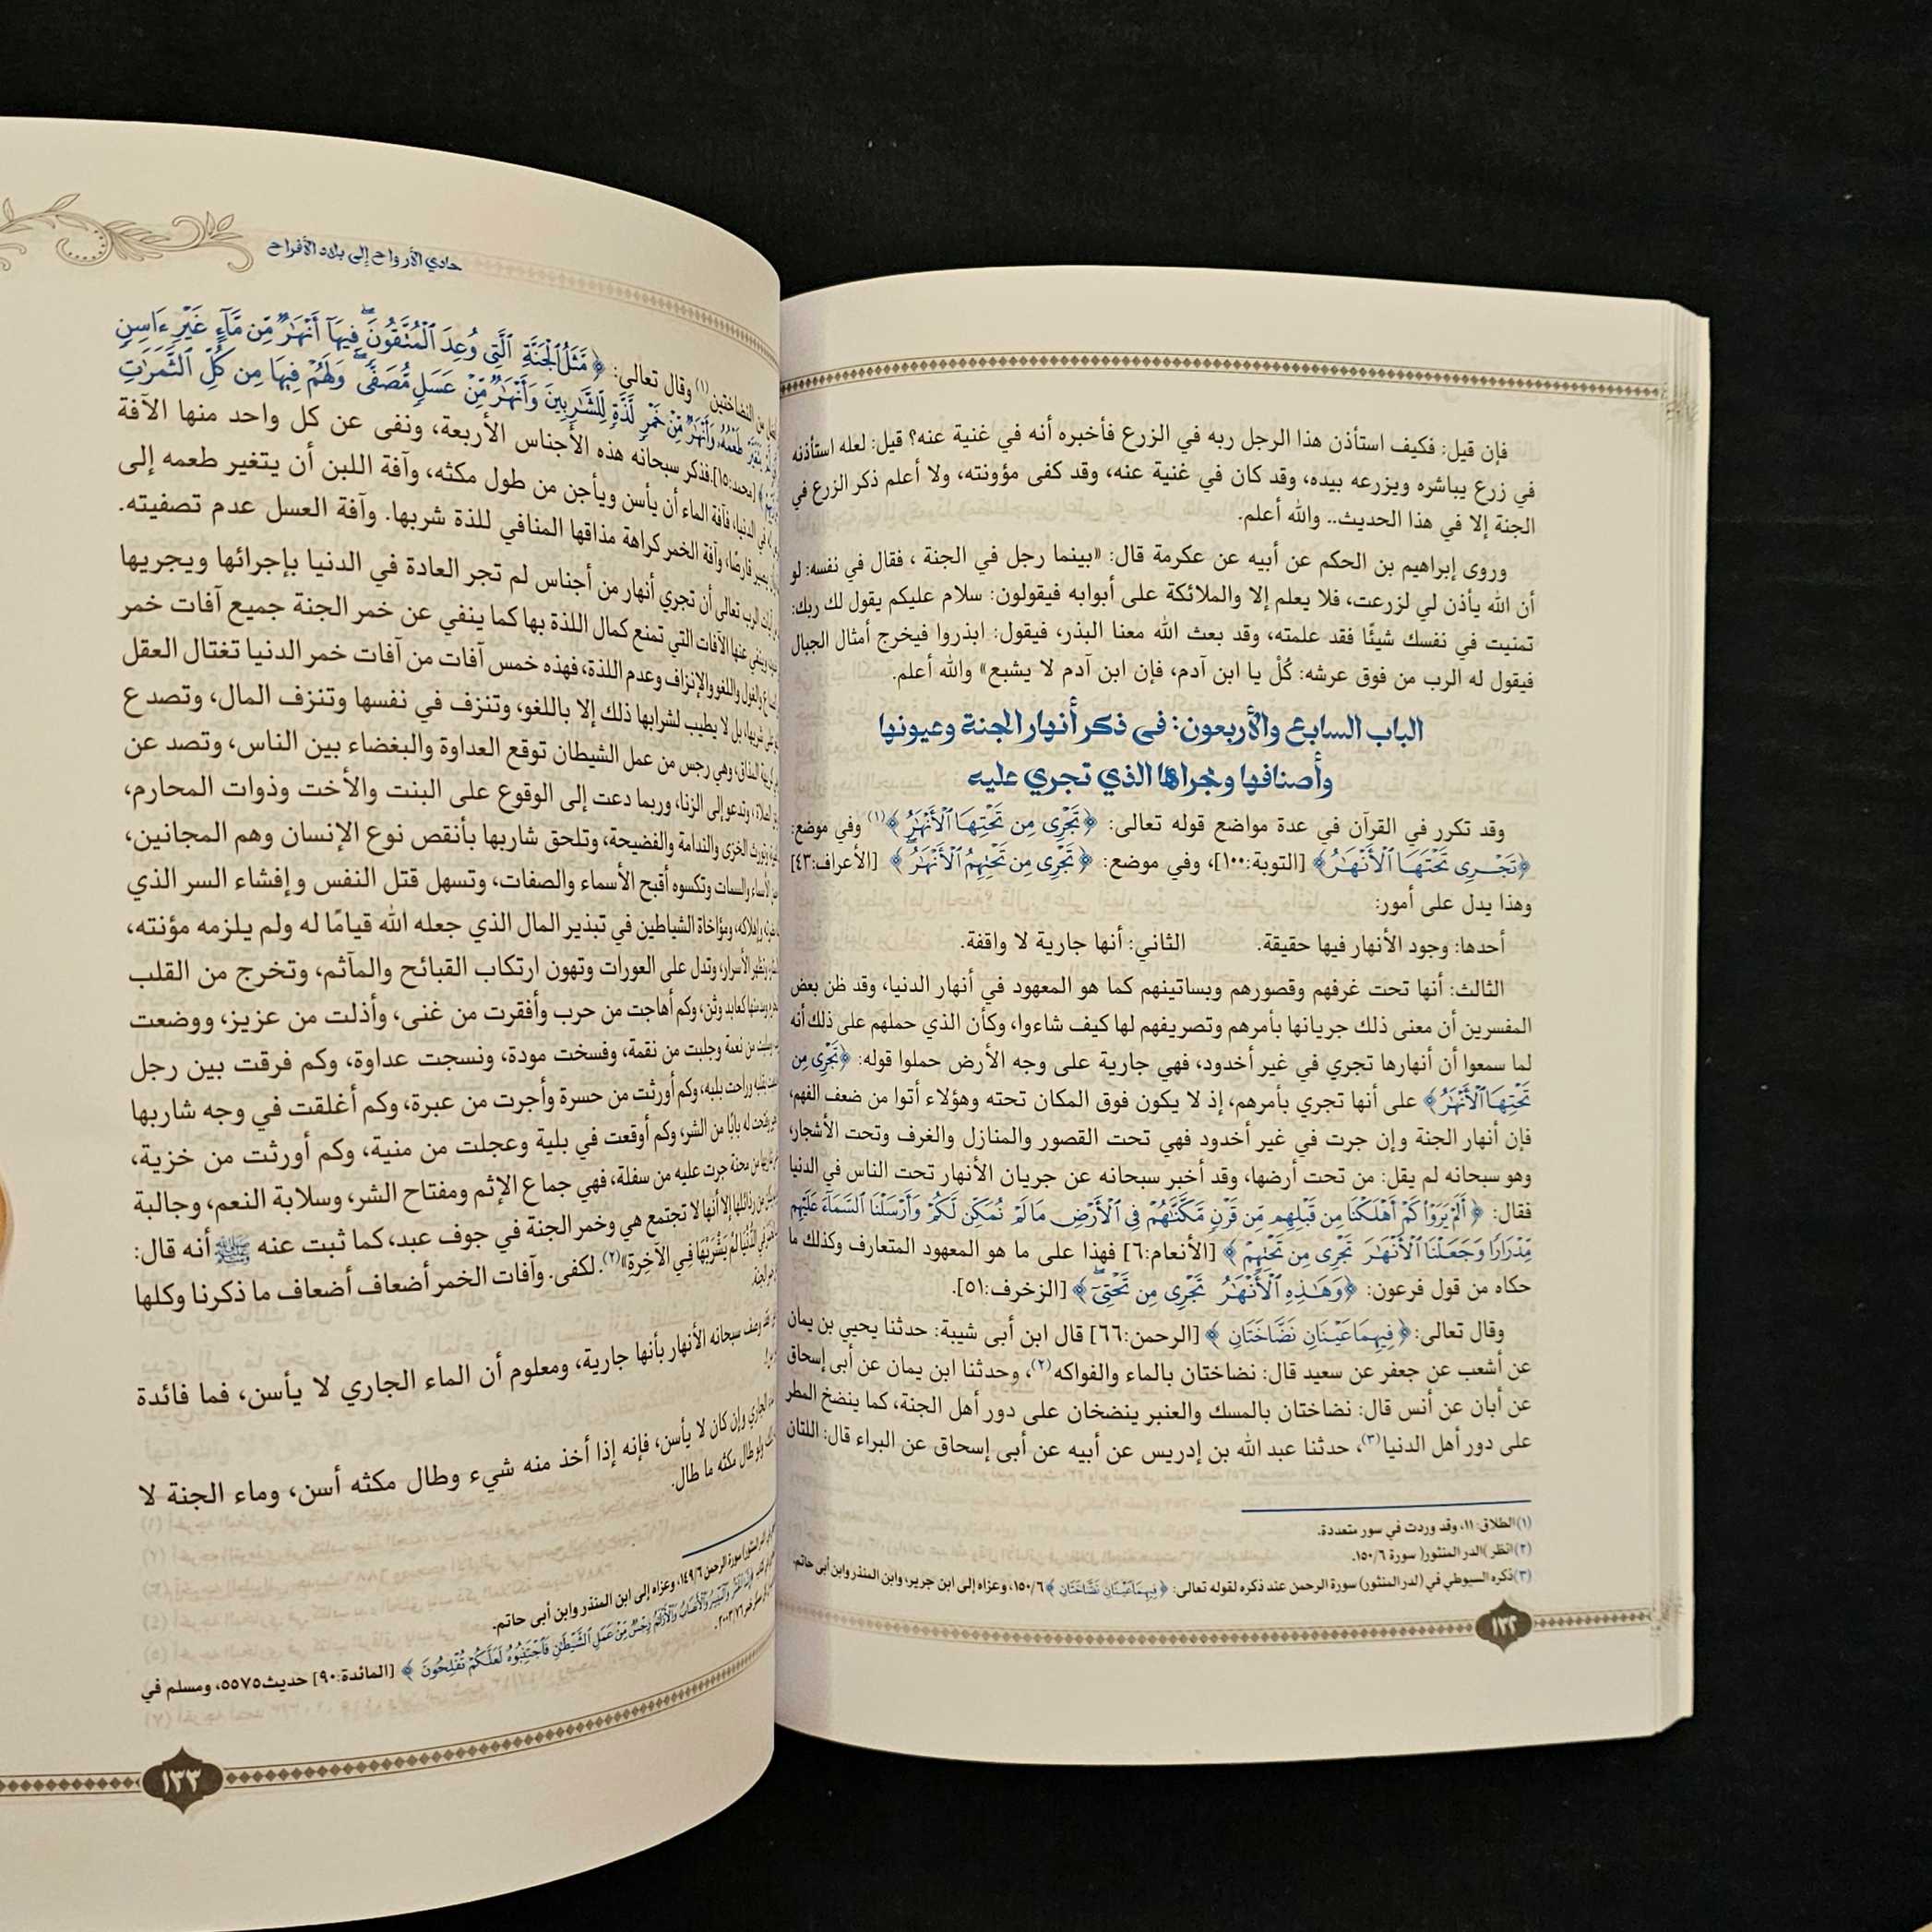 فإن قيل: فكيف استأذن هذا الرجل ربه في الزرع فأخبره أنه في غنية عنه؟ قيل: لعله استأذنه
في زرع يباشره ويزرعه بيده، وقد كان في غنية عنه، وقد كفى مؤونته، ولا أعلم ذكر الزرع في
الجنة إلا في هذا الحديث.. والله أعلم.
وروى إبراهيم بن الحكم عن أبيه عن عكرمة قال: «بينما رجل في الجنة ، فقال في نفسه: لو
أن الله يأذن لي لزرعت، فلا يعلم إلا والملائكة على أبوابه فيقولون: سلام عليكم يقول لك ربك:
تمنيت في نفسك شيئًا فقد علمته، وقد بعث الله معنا البذر، فيقول: ابذروا فيخرج أمثال الجبال
فيقول له الرب من فوق عرشه: كُلْ يا ابن آدم، فإن ابن آدم لا يشبع» والله أعلم.
الباب السابع والأربعون: في ذكر أنهار الجنة وعيونها
وأصنافها ومجراها الذي تجري عليه
وقد تكرر في القرآن في عدة مواضع قوله تعالى: ﴿تَجْرِى مِن تَحْتِهَا ٱلْأَنْهَٰرُ﴾(١) وفي موضع:
﴿تَجْرِى تَحْتَهَا ٱلْأَنْهَٰرُ﴾ [التوبة:١٠٠]، وفي موضع: ﴿تَجْرِى مِن تَحْتِهِمُ ٱلْأَنْهَٰرُ﴾ [الأعراف:٤٣]
وهذا يدل على أمور:
أحدها: وجود الأنهار فيها حقيقة. الثاني: أنها جارية لا واقفة.
الثالث: أنها تحت غرفهم وقصورهم وبساتينهم كما هو المعهود في أنهار الدنيا، وقد ظن بعض
المفسرين أن معنى ذلك جريانها بأمرهم وتصريفهم لها كيف شاءوا، وكأن الذي حملهم على ذلك أنه
لما سمعوا أن أنهارها تجري في غير أخدود، فهي جارية على وجه الأرض حملوا قوله: ﴿تَجْرِى مِن
تَحْتِهَا ٱلْأَنْهَٰرُ﴾ على أنها تجري بأمرهم، إذ لا يكون فوق المكان تحته وهؤلاء أتوا من ضعف الفهم،
فإن أنهار الجنة وإن جرت في غير أخدود فهي تحت القصور والمنازل والغرف وتحت الأشجار،
وهو سبحانه لم يقل: من تحت أرضها، وقد أخبر سبحانه عن جريان الأنهار تحت الناس في الدنيا
فقال: ﴿أَلَمْ يَرَوْا۟ كَمْ أَهْلَكْنَا مِن قَبْلِهِم مِّن قَرْنٍ مَّكَّنَّٰهُمْ فِى ٱلْأَرْضِ مَا لَمْ نُمَكِّن لَّكُمْ وَأَرْسَلْنَا ٱلسَّمَآءَ عَلَيْهِم
مِّدْرَارًا وَجَعَلْنَا ٱلْأَنْهَٰرَ تَجْرِى مِن تَحْتِهِمْ﴾ [الأنعام:٦] فهذا على ما هو المعهود المتعارف وكذلك ما
حكاه من قول فرعون: ﴿وَهَٰذِهِ ٱلْأَنْهَٰرُ تَجْرِى مِن تَحْتِىٓ﴾ [الزخرف:٥١].
وقال تعالى: ﴿فِيهِمَا عَيْنَانِ نَضَّاخَتَانِ﴾ [الرحمن:٦٦] قال ابن أبى شيبة: حدثنا يحيي بن يمان
عن أشعب عن جعفر عن سعيد قال: نضاختان بالماء والفواكه(٢)، وحدثنا ابن يمان عن أبى إسحاق
عن أبان عن أنس قال: نضاختان بالمسك والعنبر ينضخان على دور أهل الجنة، كما ينضخ المطر
على دور أهل الدنيا(٣)، حدثنا عبد الله بن إدريس عن أبيه عن أبى إسحاق عن البراء قال: اللتان
(١) الطلاق: ١١، وقد وردت في سور متعددة.
(٢) انظر )الدر المنثور( سورة ١٥٠/٦.
(٣) ذكره السيوطي في (لدر المنثور) سورة الرحمن عند ذكره لقوله تعالى: ﴿فِيهِمَا عَيْنَانِ نَضَّاخَتَانِ﴾ ١٥٠/٦، وعزاه إلى ابن جرير، وابن المنذر وابن أبى حاتم.
١٣٢
حادي الأرواح إلى بلاد الأفراح
من النضاختين(١) وقال تعالى: ﴿مَّثَلُ ٱلْجَنَّةِ ٱلَّتِى وُعِدَ ٱلْمُتَّقُونَ فِيهَآ أَنْهَٰرٌ مِّن مَّآءٍ غَيْرِ ءَاسِنٍ
يَتَغَيَّرْ طَعْمُهُۥ وَأَنْهَٰرٌ مِّنْ خَمْرٍ لَّذَّةٍ لِّلشَّٰرِبِينَ وَأَنْهَٰرٌ مِّنْ عَسَلٍ مُّصَفًّى وَلَهُمْ فِيهَا مِن كُلِّ ٱلثَّمَرَٰتِ
[محمد:١٥]. فذكر سبحانه هذه الأجناس الأربعة، ونفى عن كل واحد منها الآفة
في الدنيا، فآفة الماء أن يأسن ويأجن من طول مكثه، وآفة اللبن أن يتغير طعمه إلى
يصير قارصًا، وآفة الخمر كراهة مذاقها المنافي للذة شربها. وآفة العسل عدم تصفيته.
الرب تعالى أن تجري أنهار من أجناس لم تجر العادة في الدنيا بإجرائها ويجريها
وينفى عنها الآفات التي تمنع كمال اللذة بها كما ينفي عن خمر الجنة جميع آفات خمر
والغول واللغو والإنزاف وعدم اللذة، فهذه خمس آفات من آفات خمر الدنيا تغتال العقل
شربها، بل لا يطيب لشرابها ذلك إلا باللغو، وتنزف في نفسها وتنزف المال، وتصدع
المذاق، وهي رجس من عمل الشيطان توقع العداوة والبغضاء بين الناس، وتصد عن
الصلاة، وتدعو إلى الزنا، وربما دعت إلى الوقوع على البنت والأخت وذوات المحارم،
وتورث الخزى والندامة والفضيحة، وتلحق شاربها بأنقص نوع الإنسان وهم المجانين،
الأسماء والسمات وتكسوه أقبح الأسماء والصفات، وتسهل قتل النفس وإفشاء السر الذي
وإهلاكه، ومؤاخاة الشياطين في تبذير المال الذي جعله الله قيامًا له ولم يلزمه مؤنته،
وتظهر الأسرار، وتدل على العورات وتهون ارتكاب القبائح والمآثم، وتخرج من القلب
كعابد وثن، وكم أهاجت من حرب وأفقرت من غنى، وأذلت من عزيز، ووضعت
من نعمة وجلبت من نقمة، وفسخت مودة، ونسجت عداوة، وكم فرقت بين رجل
وراحت بلبه، وكم أورثت من حسرة وأجرت من عبرة، وكم أغلقت في وجه شاربها
وفتحت له بابًا من الشر، وكم أوقعت في بلية وعجلت من منية، وكم أورثت من خزية،
من محنة جرت عليه من سفلة، فهي جماع الإثم ومفتاح الشر، وسلابة النعم، وجالبة
من رذائلها إلا أنها لا تجتمع هي وخمر الجنة في جوف عبد، كما ثبت عنه ﷺ أنه قال:
فِي الدُّنْيَا لَمْ يَشْرَبْهَا فِي الْآخِرَةِ»(٢). لكفى. وآفات الخمر أضعاف أضعاف ما ذكرنا وكلها
وصف سبحانه الأنهار بأنها جارية، ومعلوم أن الماء الجاري لا يأسن، فما فائدة
الجاري وإن كان لا يأسن، فإنه إذا أخذ منه شيء وطال مكثه أسن، وماء الجنة لا
ولو طال مكثه ما طال.
سورة الرحمن ١٤٩/٦، وعزاه إلى ابن المنذر وابن أبى حاتم.
وَٱلْمَيْسِرُ وَٱلْأَنصَابُ وَٱلْأَزْلَٰمُ رِجْسٌ مِّنْ عَمَلِ ٱلشَّيْطَٰنِ فَٱجْتَنِبُوهُ لَعَلَّكُمْ تُفْلِحُونَ﴾ [المائدة:٩٠] حديث٥٥٧٥، ومسلم في
٢٠٠٣/٧٦.
١٣٣